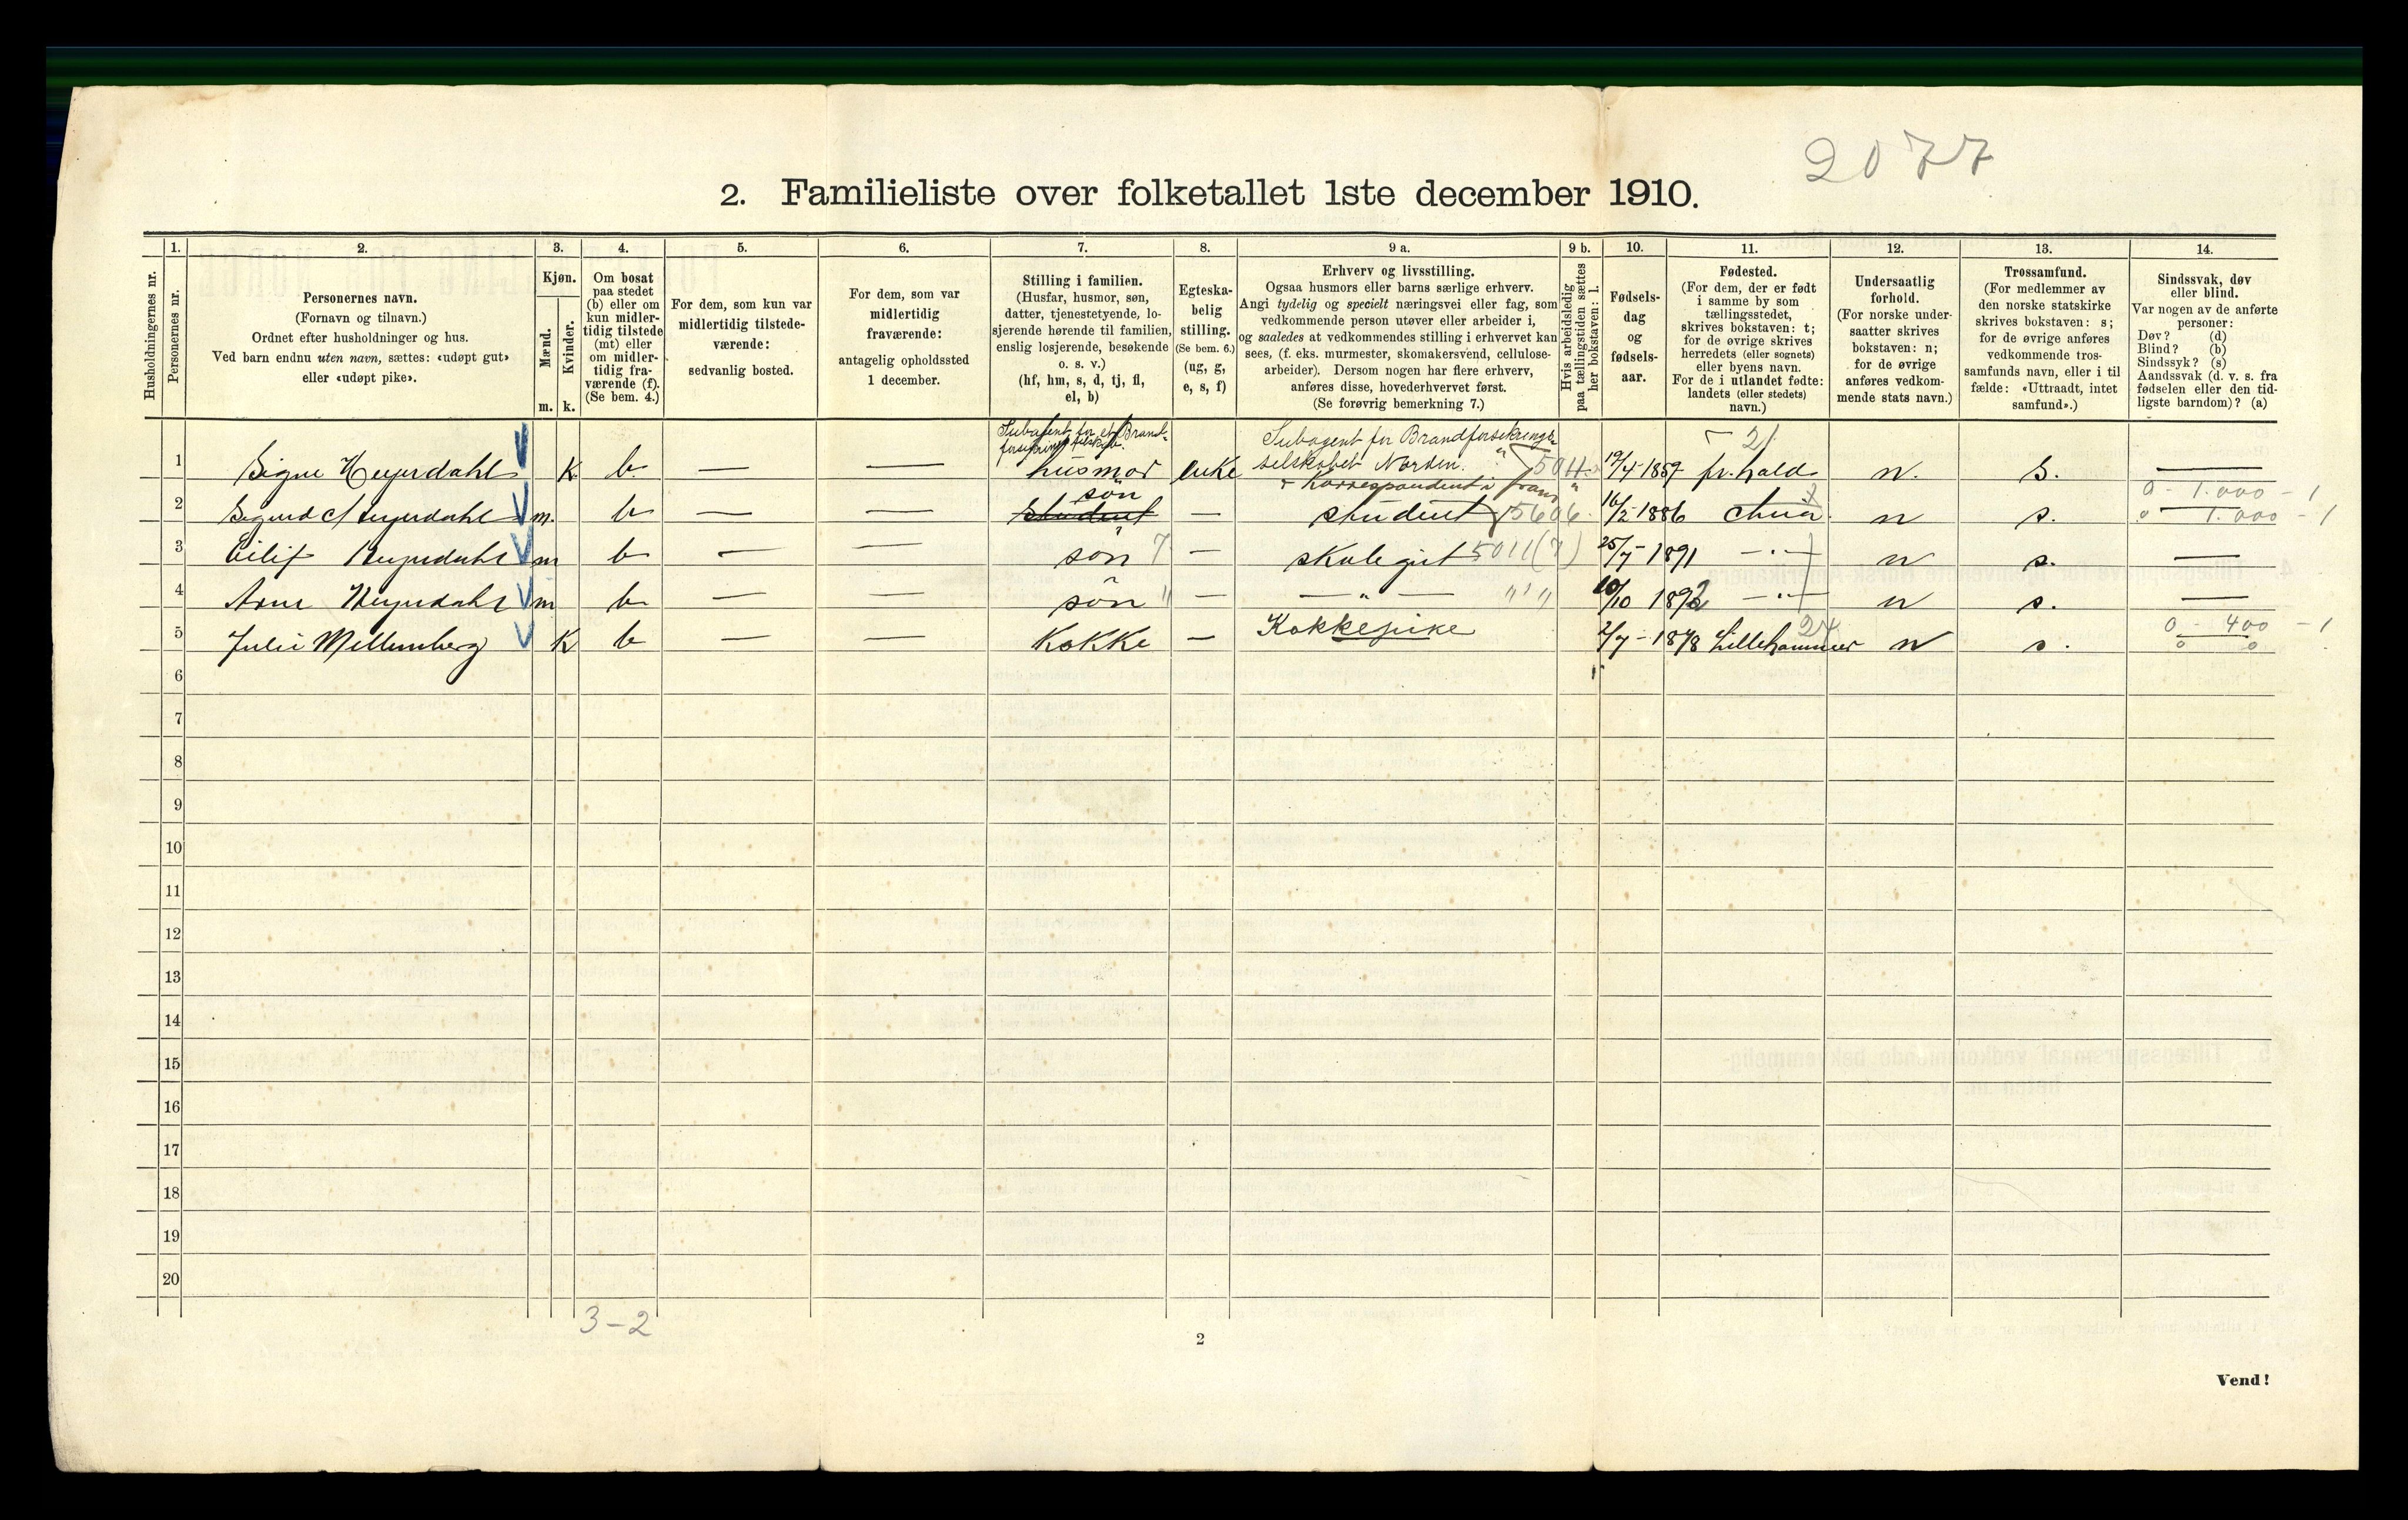 2077
2. Familieliste over folketallet 1ste december 1910.
Husholdningernes nr.
1.
Personernes nr.
2.
Personernes navn.
(Fornavn og tilnavn.)
Ordnet efter husholdninger og hus.
Ved barn endnu uten navn, sættes: «udøpt gut»
eller «udøpt pike».
3.
Kjøn.
Mænd.
Kvinder.
m. k.
4.
Om bosat
paa stedet
(b) eller om
kun midler-
tidig tilstede
(mt) eller
om midler-
tidig fra-
værende (f).
(Se bem. 4.)
5.
For dem, som kun var
midlertidig tilstede-
værende:
sedvanlig bosted.
6.
For dem, som var
midlertidig
fraværende:
antagelig opholdssted
1 december.
7.
Stilling i familien.
(Husfar, husmor, søn,
datter, tjenestetyende, lo-
sjerende hørende til familien,
enslig losjerende, besøkende
o. s. v.)
(hf, hm, s, d, tj, fl,
el, b)
8.
Egteska-
belig
stilling.
(Se bem. 6.)
(ug, g,
e, s, f)
9 a.
Erhverv og livsstilling.
Ogsaa husmors eller barns særlige erhverv.
Angi tydelig og specielt næringsvei eller fag, som
vedkommende person utøver eller arbeider i,
og saaledes at vedkommendes stilling i erhvervet kan
sees, (f. eks. murmester, skomakersvend, cellulose-
arbeider). Dersom nogen har flere erhverv,
anføres disse, hovederhvervet først.
(Se forøvrig bemerkning 7.)
9 b.
Hvis arbeidsledig
paa tællingstiden sættes
her bokstaven: l.
10.
Fødsels-
dag
og
fødsels-
aar.
11.
Fødested.
(For dem, der er født
i samme by som
tællingsstedet,
skrives bokstaven: t;
for de øvrige skrives
herredets (eller sognets)
eller byens navn.
For de i utlandet fødte:
landets (eller stedets)
navn.)
12.
Undersaatlig
forhold.
(For norske under-
saatter skrives
bokstaven: n;
for de øvrige
anføres vedkom-
mende stats navn.)
13.
Trossamfund.
(For medlemmer av
den norske statskirke
skrives bokstaven: s;
for de øvrige anføres
vedkommende tros-
samfunds navn, eller i til
fælde: «Uttraadt, intet
samfund».)
14.
Sindssvak, døv
eller blind.
Var nogen av de anførte
personer:
Døv? (d)
Blind? (b)
Sindssyk? (s)
Aandssvak (d. v. s. fra
fødselen eller den tid-
ligste barndom)? (a)
Subagent for et Brand-
Subagent for Brandforsikrings-
21
1 Signe Heyerdahl K b. — — husmor enke selskabet Norden. 5011 19/4 1859 fr.hald n. s. —
søn
+ Korrespondent i
0 - 1.000 - 1
2 Sigurd Heyerdahl m. b — — student — student 5606 16/2 1886 n s. 0 1.000 - 1
3 Eilif Heyerdahl m b — — søn 7 — skolegut 5011 (7) 25/7 1891 — " — n s. —
4 Arne Heyerdahl m b — — søn " — — " — " ' " 10/10 1892 — " — n s. —
24
0 - 400 - 1
5 Julie Mellemberg K b — — Kokke — Kokkepike 2/7 - 1878 Lillehammer n s. 0 0
6
7
8
9
10
11
12
13
14
15
16
17
18
19
20
3-2
2
Vend!